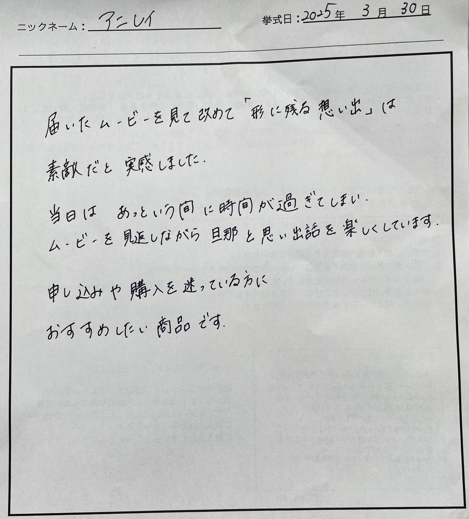 ニックネーム： アニレイ
挙式日：2025年 3月 30日
届いたムービーを見て改めて「形に残る想い出」は
素敵だと実感しました.
当日は あっという間に時間が過ぎてしまい.
ムービーを見返しながら旦那と思い出話を楽しくしています.
申し込みや購入を迷っている方に
おすすめしたい商品です.